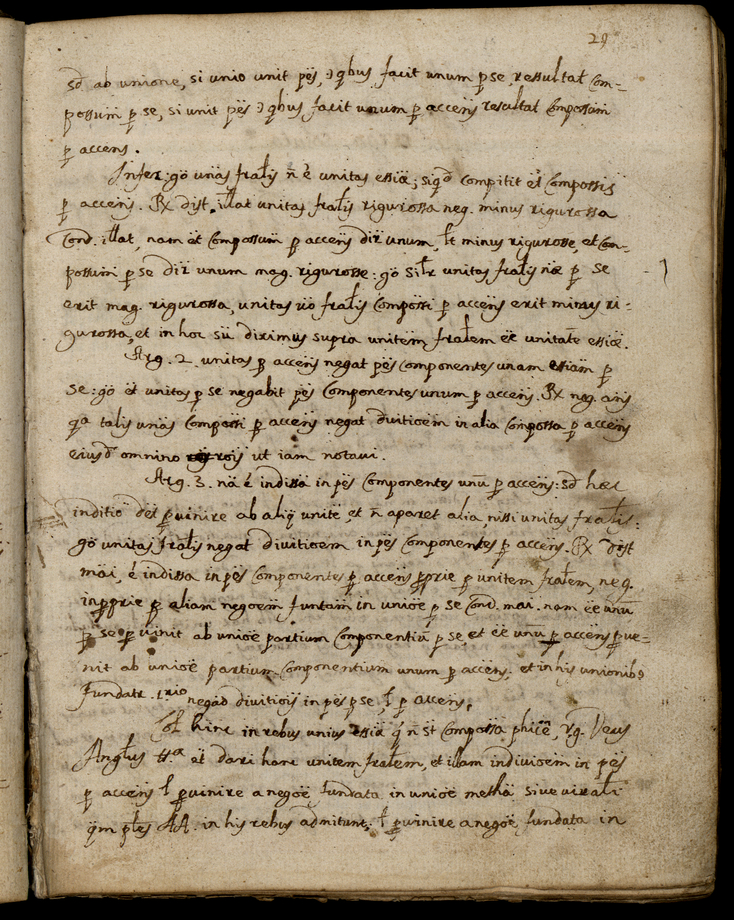 29
sd ab unione, si unio unit pẽs, ex qbus facit unum p se, ressultat Com-
possum̃ p se, si unit pẽs ex qbus facit unum p accens resultat Compossum̃
p accens.
Infer: gõ unãs fralis ñ ẽ unitas essiæ; siqd compitit et Compossis
p accens. Rx dist. illat unitas fralis rigurossa neg. minus rigurossa
Cond. illat, nam et Compossum̃ p accens dir unum, lt minus rigurosse, et Com-
possum̃ p se dir unum mag. rigurosse: gõ silr unitas fralis næ p se
erit mag. rigurossa, unitas uo fralis Compossi p accens erit minus ri-
gurossa, et in hoc sũ diximus supra unitem fralem ẽe unitate essiæ.
Arg. 2. unitas p accens negat pẽs componentes unam essiam p
se: gõ et unitas p se negabit pẽs Componentes unum p accens. Rx neg. ans
qa talis unãs Compossi p accens negat divitioem in alia Compossa p accens
eiusd omnino rõis ut iam notavi.
Arg. 3. nã ẽ indissa in pẽs Componentes unũ p accens: sd hæc
inditio det pvinire ab aliq unitẽ, et ñ aparet alia nissi unitas fralis:
gõ unitas fralis negat divitioem in pẽs Componentes p accens. Rx dist
mãi, ẽ indissa in pẽs Componentes p accens pprie p unitem fralem, neg.
inpprie p aliam negoem funtam in unioẽ p se Cond. mai. nam ẽe unũ
p se pvinit ab unioẽ partium Componentiũ p se, et ẽe unũ p accens pve-
nit ab unioẽ partium Componentium unum p accens: et in his unionibus
fundatr negao divitiois in pẽs p se, l p accens.
hinc in rebus unius essiæ q ñ st Compossa phicẽ, v.g. Deus
Anglus et dari hanc unitem fralem, et illam indivioem in pẽs
p accens l pvinire a negoẽ fundata in unioẽ metha sive virali
qm ples AA. in his rebus admitunt; l pvinire a negoẽ fundata in